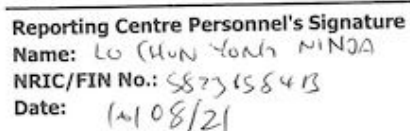 Reporting Centre Personnel's Signature
Name: LO CHUN YONG NINJA
NRIC/FIN No.: S8731584B
Date: 08/21